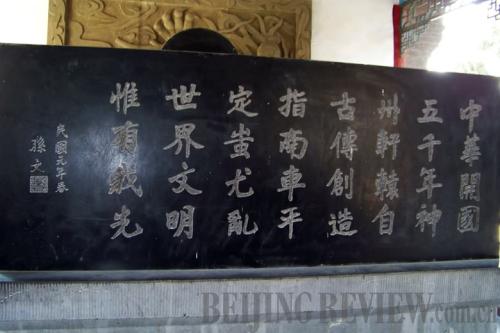 中華開國
五千年神
州軒轅自
古傳創造
指南車平
定蚩尤亂
世界文明
惟有我先
民國元年春
孫文
BEIJING REVIEW.com.cn